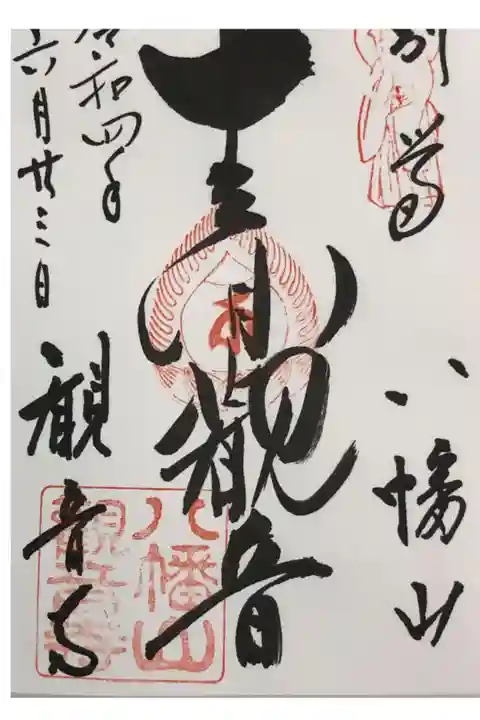 八幡山
観音
令和四年
六月廿三日
観音寺
八幡山
観音寺